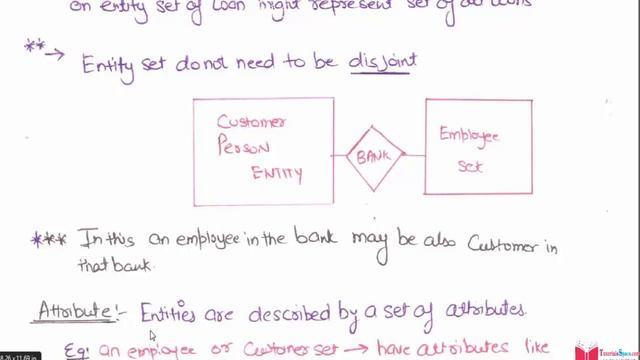 an entity set of loan might represent set of all loans
**→ Entity set do not need to be disjoint
Customer
Person
ENTITY
BANK
Employee
set
*** In this an employee in the bank may be also Customer in
that bank.
Attribute:- Entities are described by a set of attributes
Eg: an employee or Customer set → have attributes like
8.26 x 11.69 in